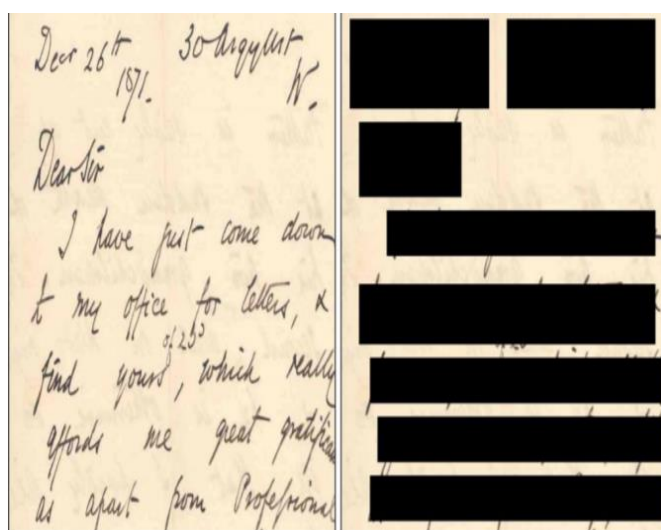 Dec 26th 30 Argyll St
1871. W.
Dear Sir
I have just come down
to my office for letters, &
of 23d
find yours, which really
affords me great gratifica
as apart from Professional